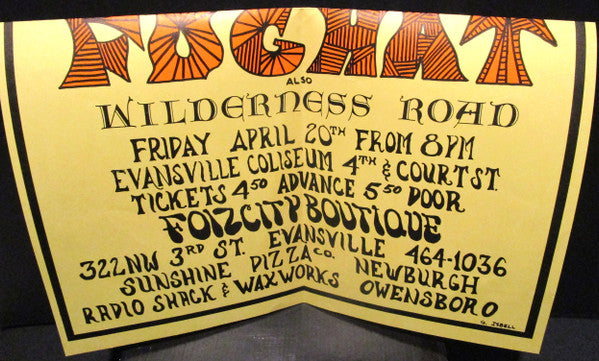 FOGHAT
ALSO
WILDERNESS ROAD
FRIDAY APRIL 20TH FROM 8PM
EVANSVILLE COLISEUM 4TH & COURT ST.
TICKETS 4.50 ADVANCE 5.50 DOOR
FOIZCITY BOUTIQUE
322 NW 3RD ST. EVANSVILLE 464-1036
SUNSHINE PIZZA CO. NEWBURGH
RADIO SHACK & WAXWORKS OWENSBORO